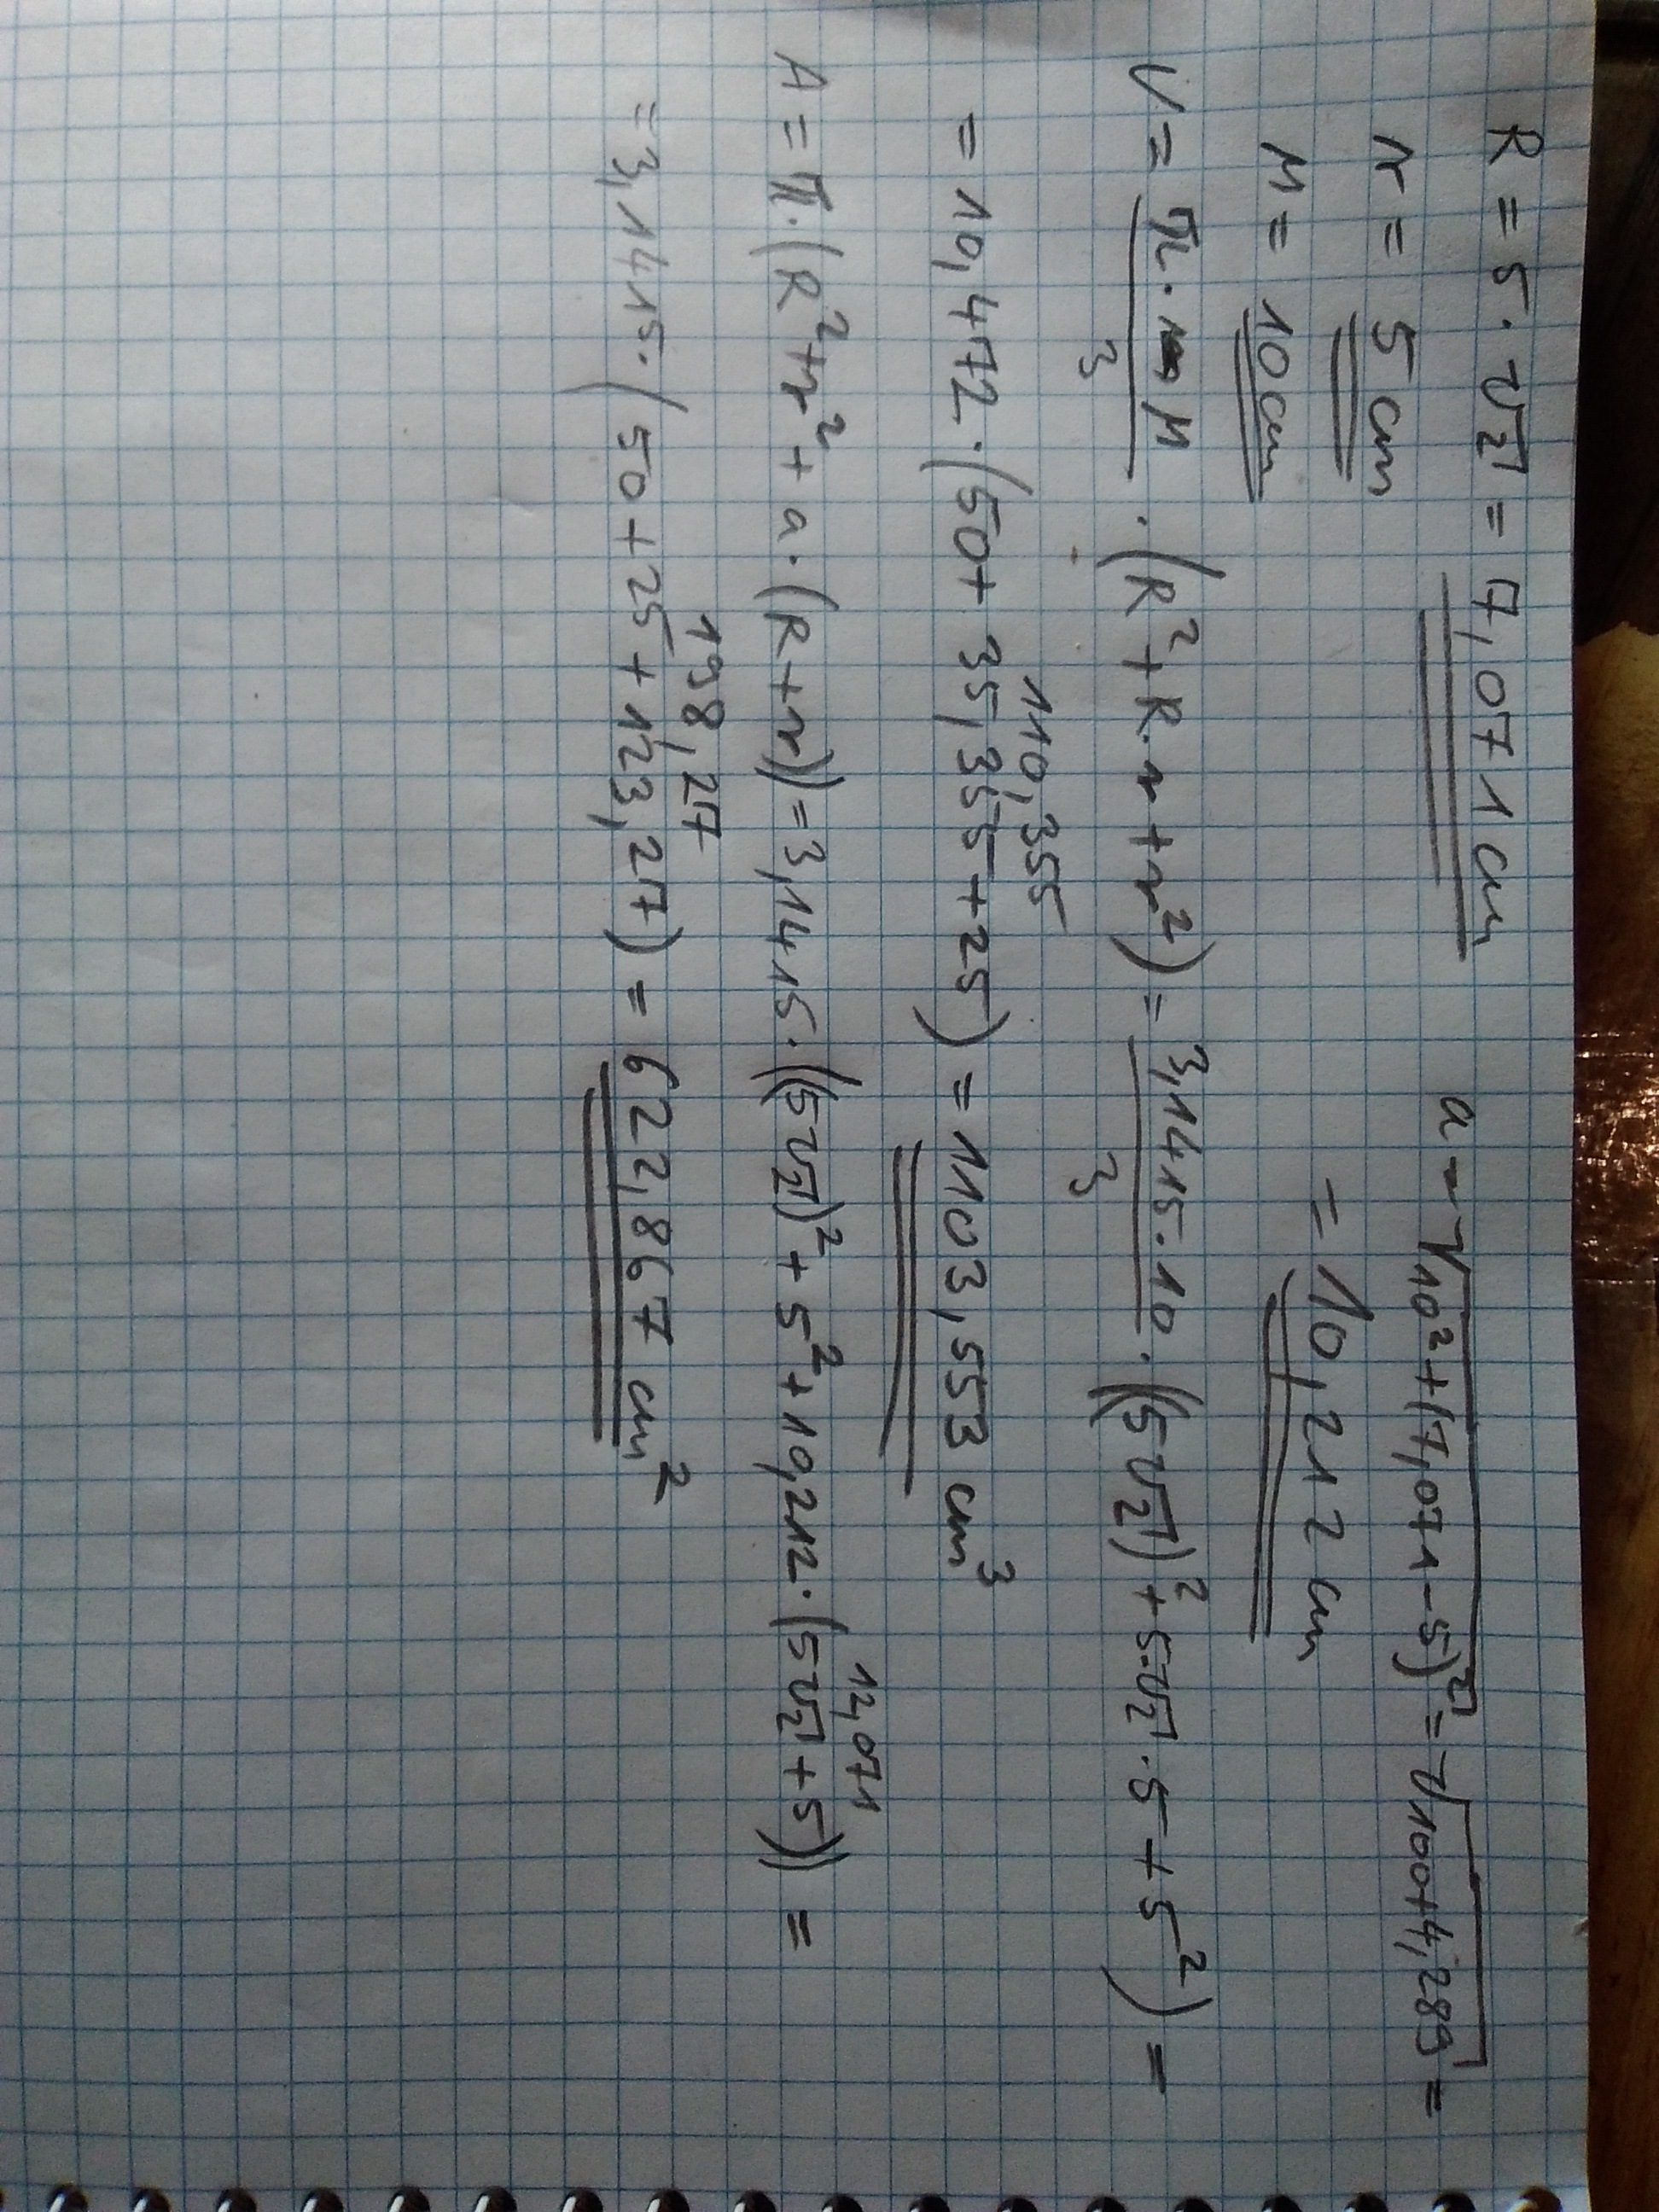 R = 5 · √2 = 7,071 cm
r = 5 cm
M = 10 cm
a = √10² + (7,071 - 5)² = √100 + 4,289 =
= 10,212 cm
V = π · M / 3 · (R² + R · r + r²) = 3,1415 · 10 / 3 · ((5√2)² + 5 · √2 · 5 + 5²) =
110,355
= 10,472 · (50 + 35,355 + 25) = 1103,553 cm³
12,071
A = π · (R² + r² + a · (R + r)) = 3,1415 · ((5√2)² + 5² + 10,212 · (5√2 + 5)) =
198,27
= 3,1415 · (50 + 25 + 123,27) = 622,867 cm²